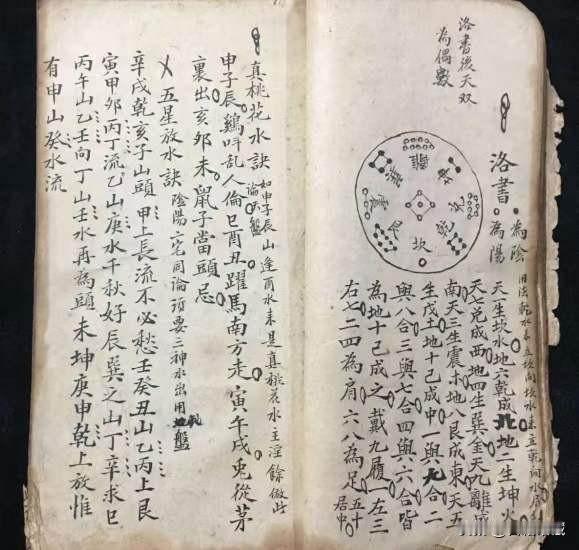 洛書後天双
為偶數
洛書 為陰 為陽
離
坤
兌
乾
坎
艮
震
巽
天一生坎水地六乾成北地二生坤火
天七兌成西地四生巽金天九離
南天三生震木地八艮成東天五
生戊土地十己成中一與九合二
與八合三與七合四與六合皆
為地十己成之戴九履一左三
右七二四為肩六八為足五十居中
真桃花水訣 如申子辰山逢酉水来是真桃花水主淫餘倣此
申子辰鷄呌乱人倫巳酉丑躍馬南方走寅午戌兎從茅
裏出亥卯未鼠子當頭忌
五星放水訣 陰陽二宅同論須要三神水出用盤
辛戌乾亥子山頭甲上長流不必愁壬癸丑山乙丙上艮
寅甲卯丙丁流乙山庚水千秋好辰巽之山丁辛求巳
丙午山乙壬向丁山壬水再為頭未坤庚申乾上放惟
有申山癸水流